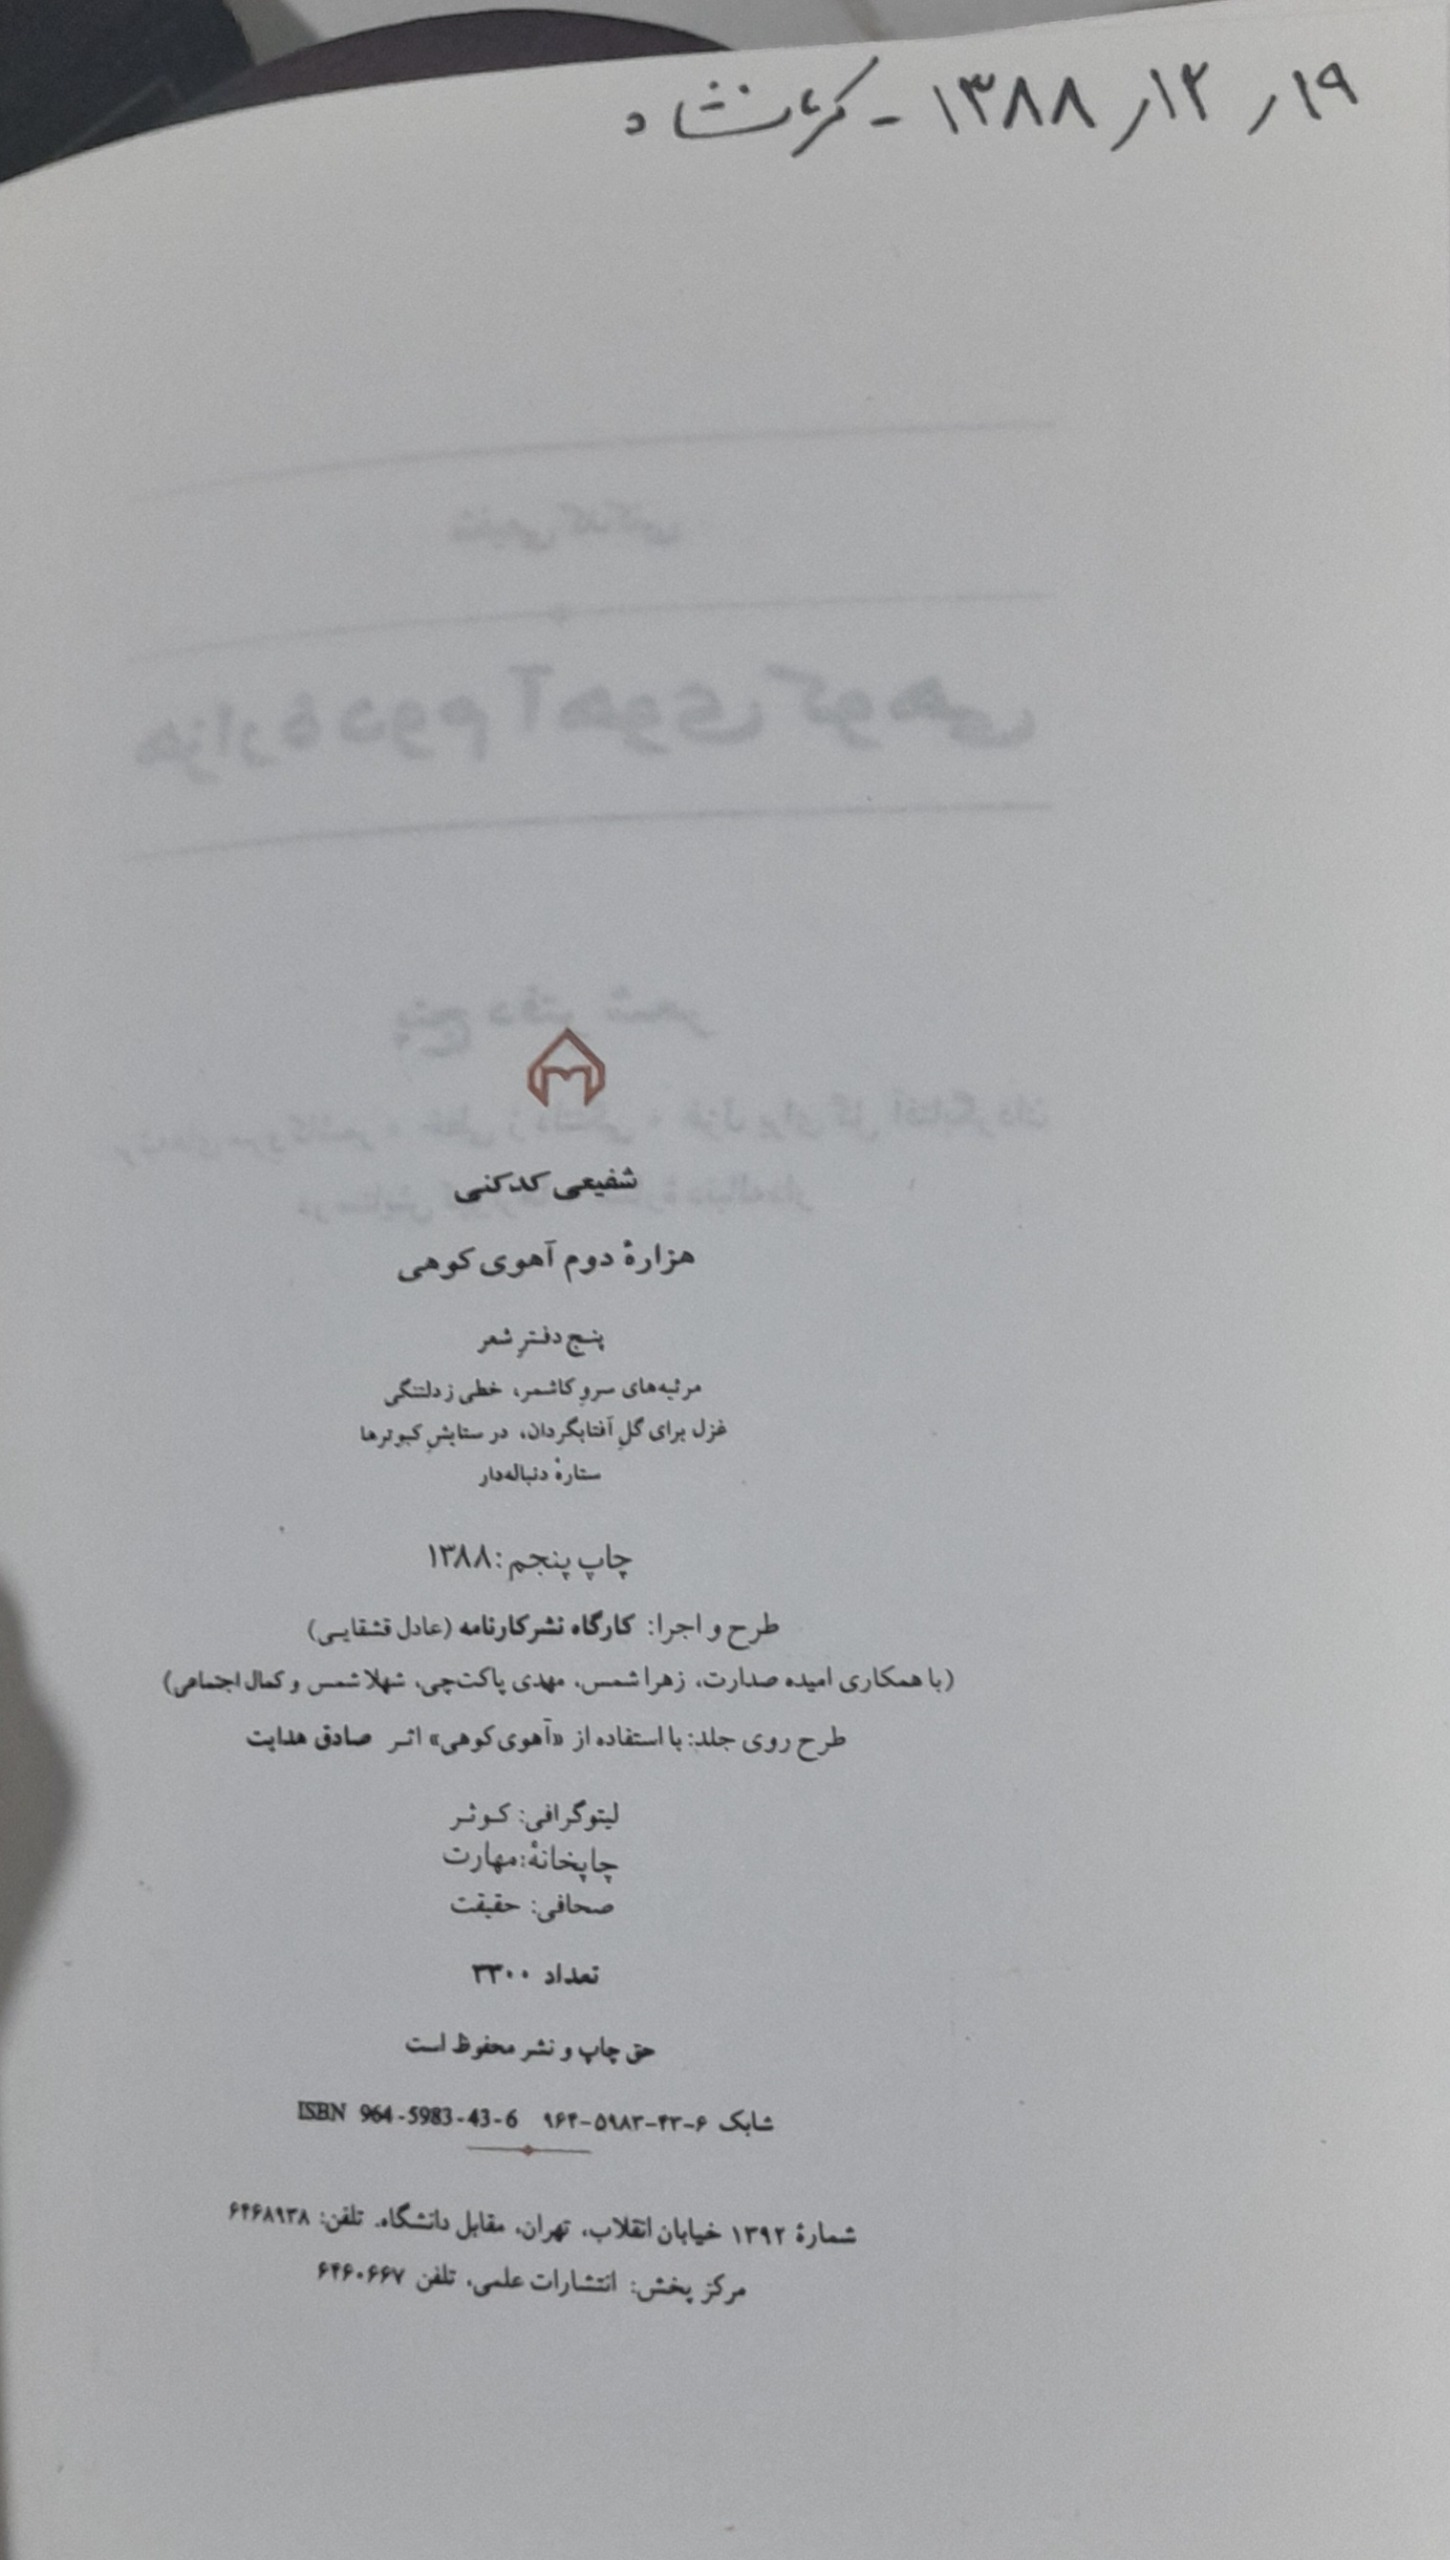 ۱۹ر ۱۲ر ۱۳۸۸ - کرمانشاه
شفیعی کدکنی
هزارهٔ دوم آهوی کوهی
پنج دفترِ شعر
مرثیه‌های سروِ کاشمر، خطی ز دلتنگی
غزل برای گلِ آفتابگردان، در ستایشِ کبوترها
ستارهٔ دنباله‌دار
چاپ پنجم: ۱۳۸۸
طرح و اجرا: کارگاه نشر کارنامه (عادل قشقایی)
(با همکاری امیده صدارت، زهرا شمس، مهدی پاکت‌چی، شهلا شمس و کمال اجتماعی)
طرح روی جلد: با استفاده از «آهوی کوهی» اثر صادق هدایت
لیتوگرافی: کوثر
چاپخانهٔ: مهارت
صحافی: حقیقت
تعداد ۳۳۰۰
حق چاپ و نشر محفوظ است
شابک ۶-۴۳-۵۹۸۳-۹۶۴ ISBN 964-5983-43-6
شمارهٔ ۱۳۹۲ خیابان انقلاب، تهران، مقابل دانشگاه. تلفن: ۶۴۶۸۹۳۸
مرکز پخش: انتشارات علمی، تلفن ۶۴۶۰۶۶۷